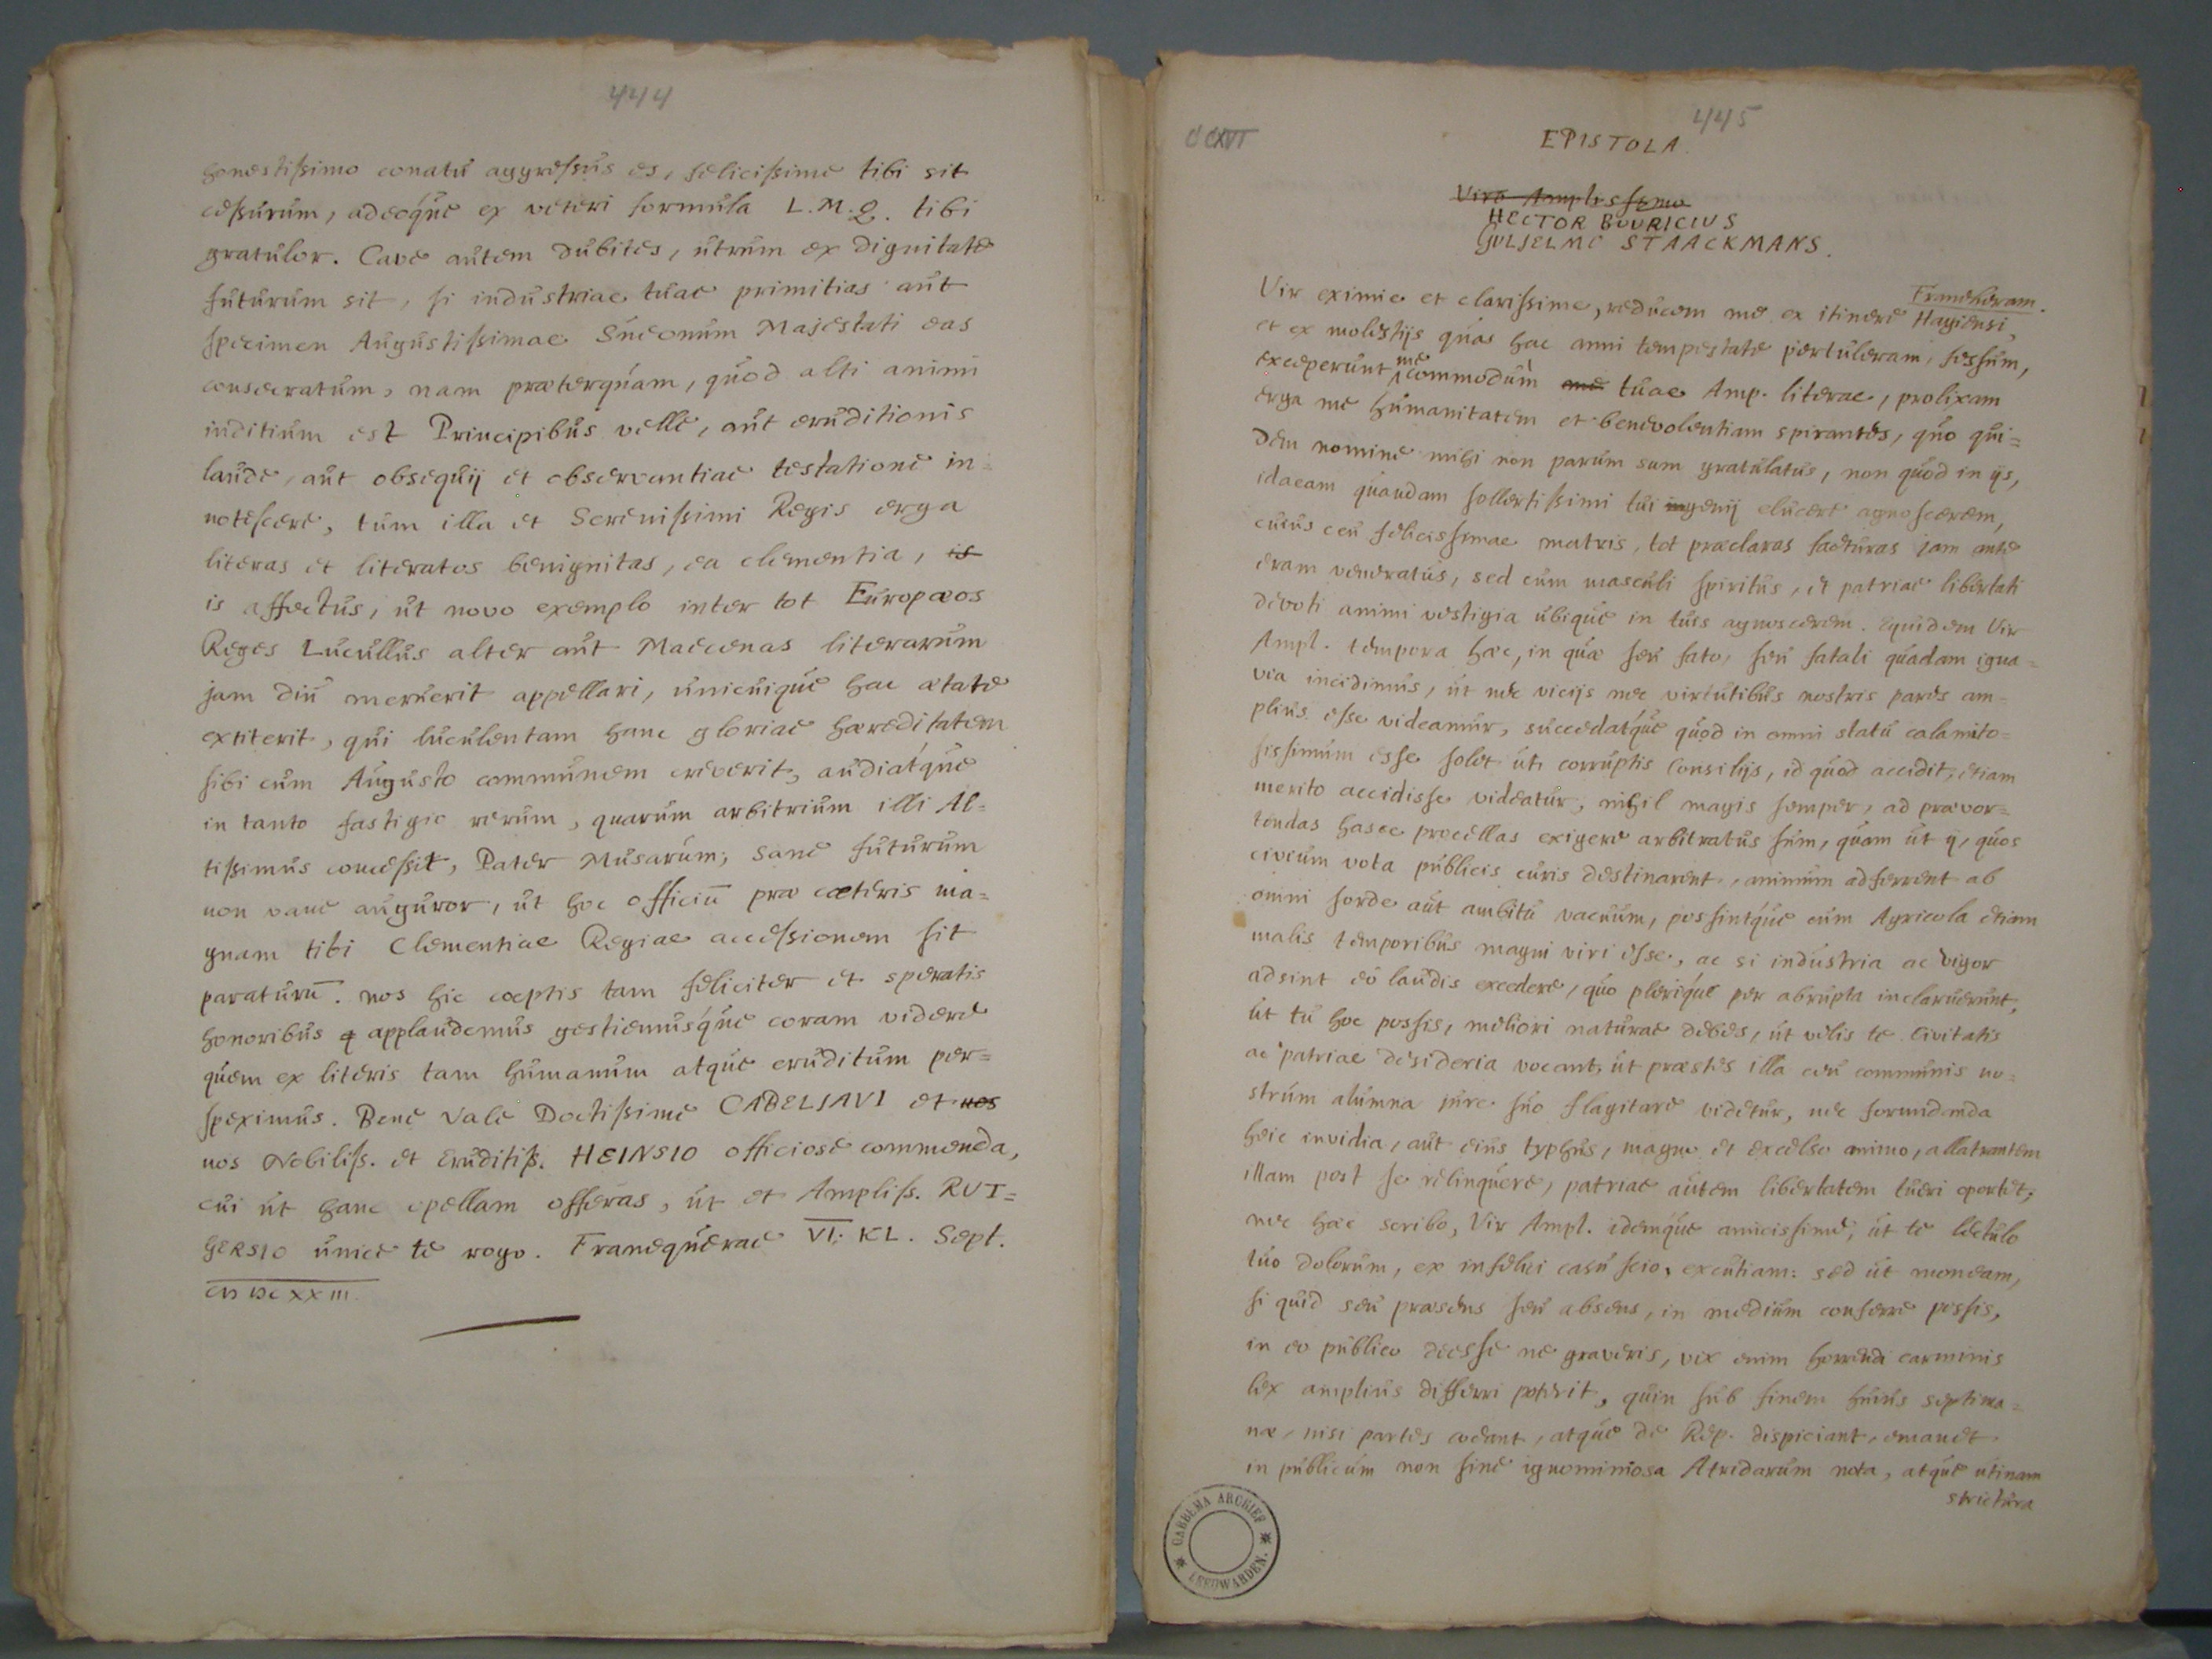 444
honestissimo conatu aggressus es, felicissime tibi sit
cessurum, adeoque ex veteri formula L.M.Q. tibi
gratulor. Cave autem dubites, utrum ex dignitate
futurum sit, si industriae tuae primitias aut
specimen Augustissimae Sueonum Majestati eas
consecratum, nam praeterquam, quod alti animi
inditium est Principibus velle, aut eruditionis
laude, aut obsequij et observantiae testatione in=
notescere, tum illa et Serenissimi Regis erga
literas et literatos benignitas, ea clementia, is
is affectus, ut novo exemplo inter tot Europaeos
Reges Lucullus alter aut Maecenas literarum
jam diu meruerit appellari, unicuique hac aetate
extiterit, qui luculentam hanc gloriae haereditatem
sibi cum Augusto communem creverit, audiatque
in tanto fastigio rerum, quarum arbitrium illi Al=
tissimus concessit, Pater Musarum; sane futurum
non vane auguror, ut hoc officiū prae caeteris ma=
gnam tibi Clementiae Regiae accessionem sit
paraturū. nos hic coeptis tam feliciter et speratis
honoribus applaudemus gestiemusque coram videre
quem ex literis tam humanum atque eruditum per=
speximus. Bene Vale Doctissime CABELIAVI et nos
nos Nobiliss. et Eruditiss. HEINSIO officiose commenda,
cui ut hanc opellam offeras, ut et Ampliss. RUT=
GERSIO unice te rogo. Franequerae VI. KL. Sept.
CIƆ IƆC XXIII.
CCXVI
445
EPISTOLA.
Viro Amplissimo
HECTOR BOURICIUS
GULIELMO STAACKMANS.
Franekeram
Vir eximie et clarissime, reducem me ex itinere Hagiensi,
et ex molestijs quas hac anni tempestate pertuleram, fessum,
exceperunt me commodum me tuae Amp. literae, prolixam
erga me humanitatem et benevolentiam spirantes, quo qui=
dem nomine mihi non parum sum gratulatus, non quod in ijs,
idaeam quandam sollertissimi tui ingenij elucere agnoscerem,
cuius ceu felicissimae matris, tot praeclaras faeturas jam ante
eram veneratus, sed cum masculi spiritus, et patriae libertati
devoti animi vestigia ubique in tuis agnoscerem. Equidem Vir
Ampl. tempora haec, in quae seu fato, seu fatali quadam igna=
via incidimus, ut nec vicijs nec virtutibus nostris pares am=
plius esse videamur, succedatque quod in omni statu calamito=
sissimum esse solet uti corruptis Consilijs, id quod accidit, etiam
merito accidisse videatur; nihil magis semper, ad praever=
tendas hasce procellas exigere arbitratus sum, quam ut ij, quos
civium vota publicis curis destinarent, animum adferrent ab
omni sorde aut ambitu vacuum, possintque cum Agricola etiam
malis temporibus magni viri esse, ac si industria ac vigor
adsint eó laudis excedere, quo plerique per abrupta inclaruerunt,
ut tu hoc possis, meliori naturae debes, ut velis te Civitatis
ac patriae desideria vocant, ut praestes illa ceu communis no=
strum alumna jure suo flagitare videtur, nec formidanda
heic invidia, aut eius typhus, magno et excelso animo, allatrantem
illam post se relinquere, patriae autem libertatem tueri oportet;
nec haec scribo, Vir Ampl. idemque amicissime, ut te lectulo
tuo dolorum, ex infelici casu scio, excutiam: sed ut moneam,
si quid seu praesens seu absens, in medium conferre possis,
in eo publico deesse ne graveris, vix enim horrendi carminis
lex amplius differri poterit, quin sub finem huius septima=
nae, nisi partes coeant, atque de Rep. dispiciant, emanet
in publicum non sine ignominiosa Atridarum nota, atque utinam
strictura
GABBEMA ARCHIEF
LEEUWARDEN.